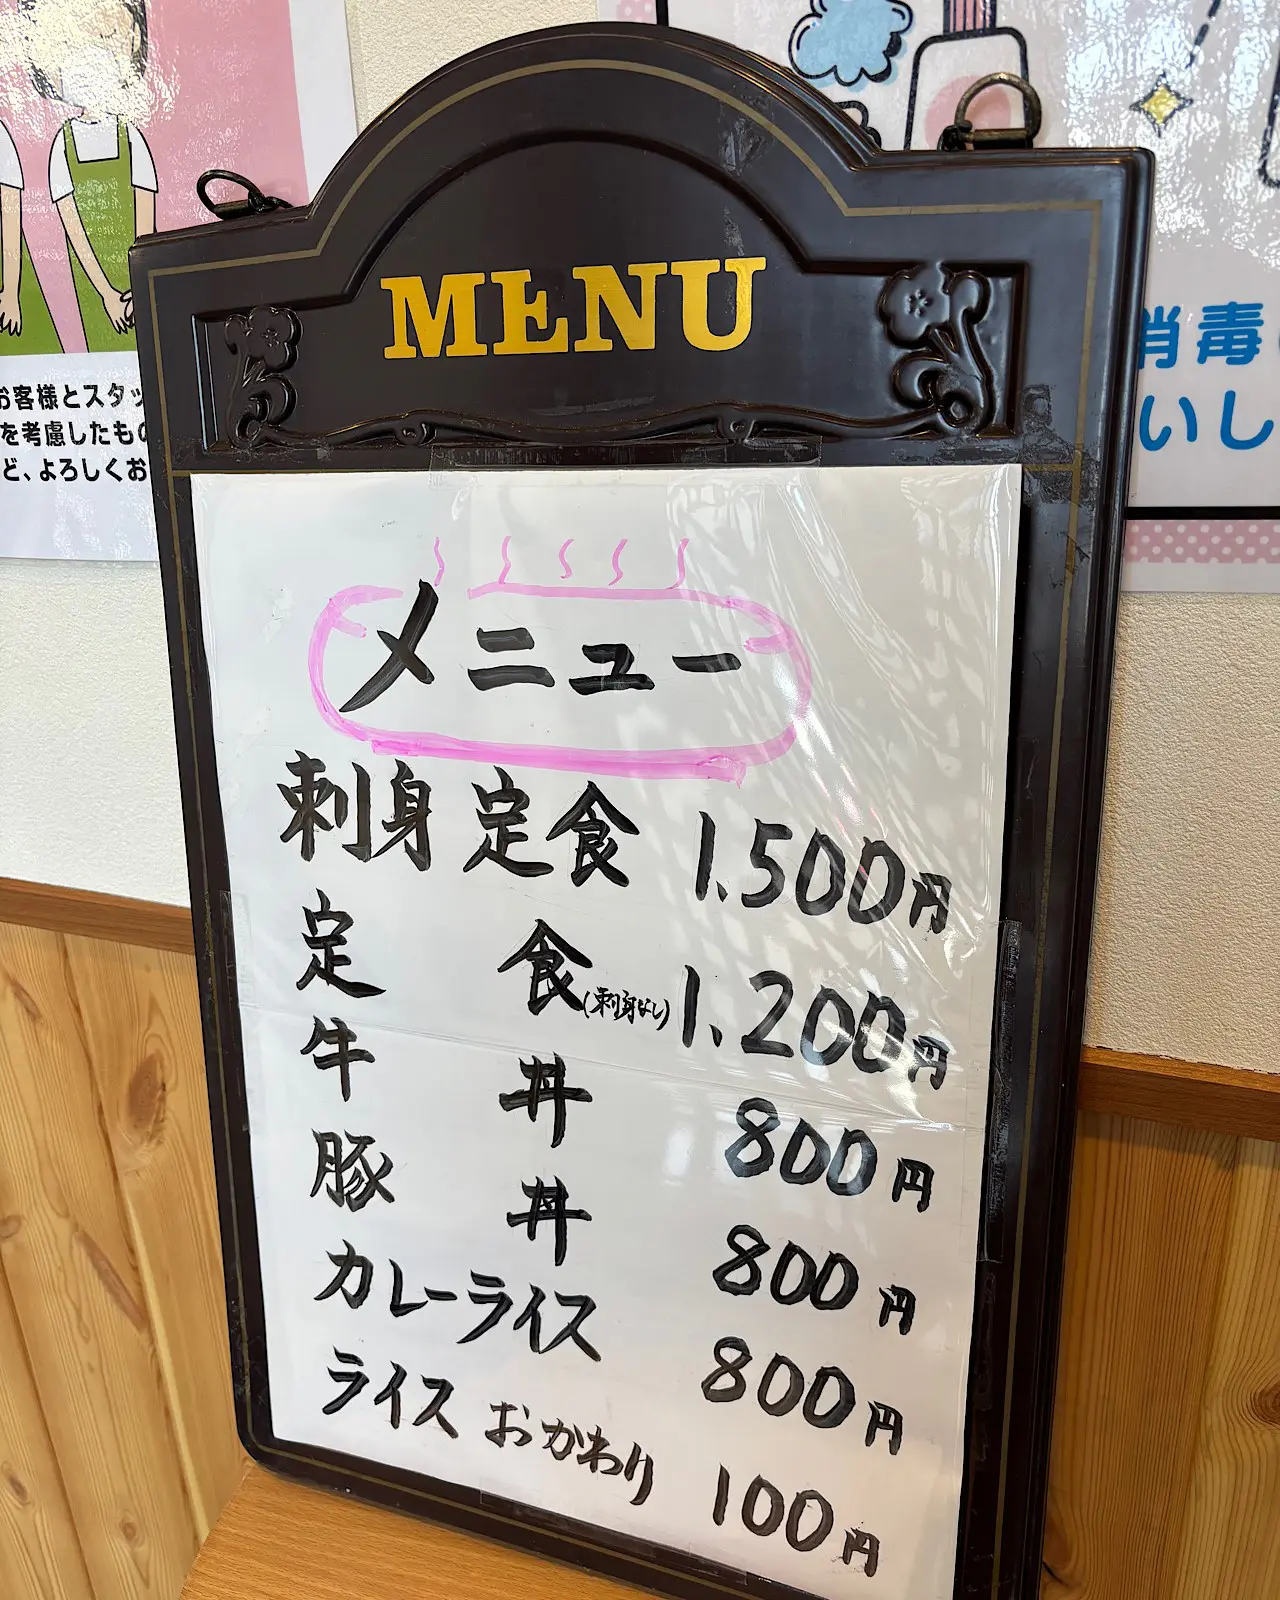 MENU
メニュー
刺身定食 1.500円
定食(刺身なし) 1.200円
牛丼 800円
豚丼 800円
カレーライス 800円
ライスおかわり 100円
お客様とスタッ
を考慮したもの
ど、よろしくお
消毒
いし